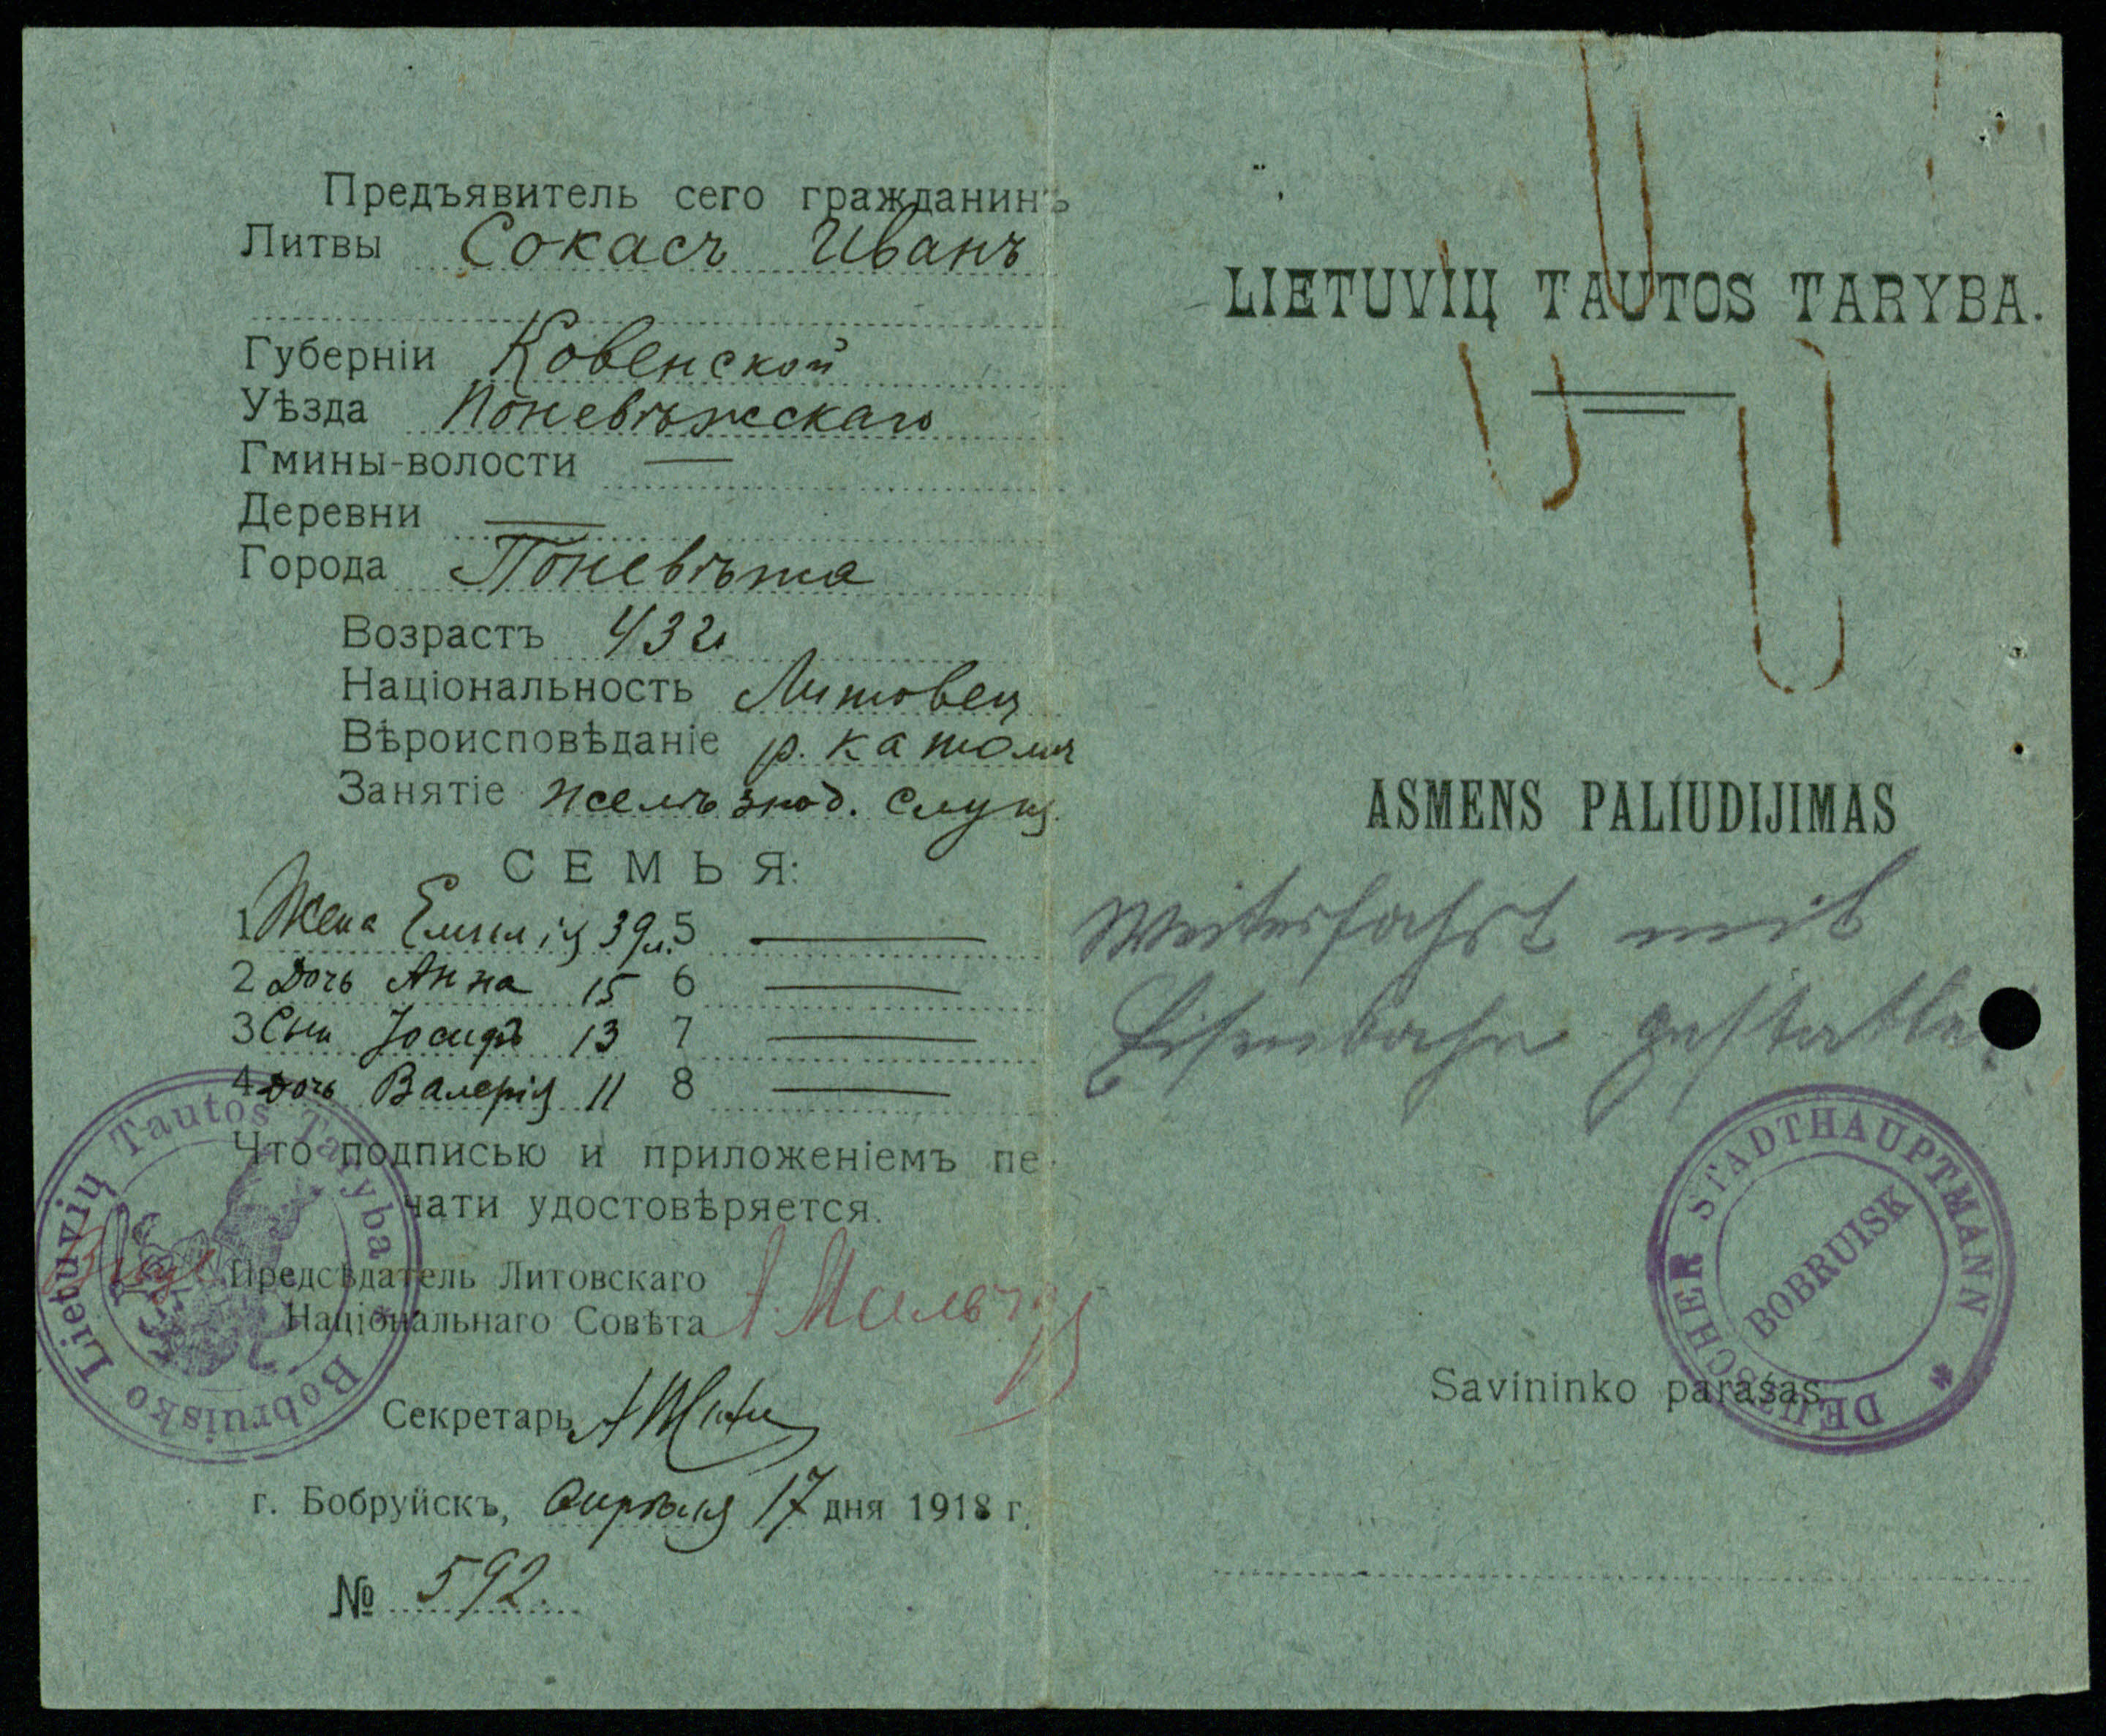 Предъявитель сего гражданинъ
Литвы Сокасъ Иванъ
Губерніи Ковенской
Уѣзда Поневѣжскаго
Гмины-волости —
Деревни —
Города Поневѣжа
Возрастъ 43 г
Національность Литовец
Вѣроисповѣданіе р. катол
Занятіе желѣзнод. служ.
СЕМЬЯ:
1 Жена Емилія 39 л. 5 —
2 Дочь Анна 15 6 —
3 Сын Іосифъ 13 7 —
4 Дочь Валерія 11 8 —
Что подписью и приложеніемъ пе-
чати удостовѣряется.
Предсѣдатель Литовскаго
Національнаго Совѣта
Секретарь
г. Бобруйскъ, Апрѣля 17 дня 1918 г.
№ 592.
Bobruisko Lietuvių Tautos Taryba
LIETUVIŲ TAUTOS TARYBA.
ASMENS PALIUDIJIMAS
Weiterfahrt mit
Eisenbahn gestattet.
DEUTSCHER STADTHAUPTMANN *
BOBRUISK
Savininko parašas